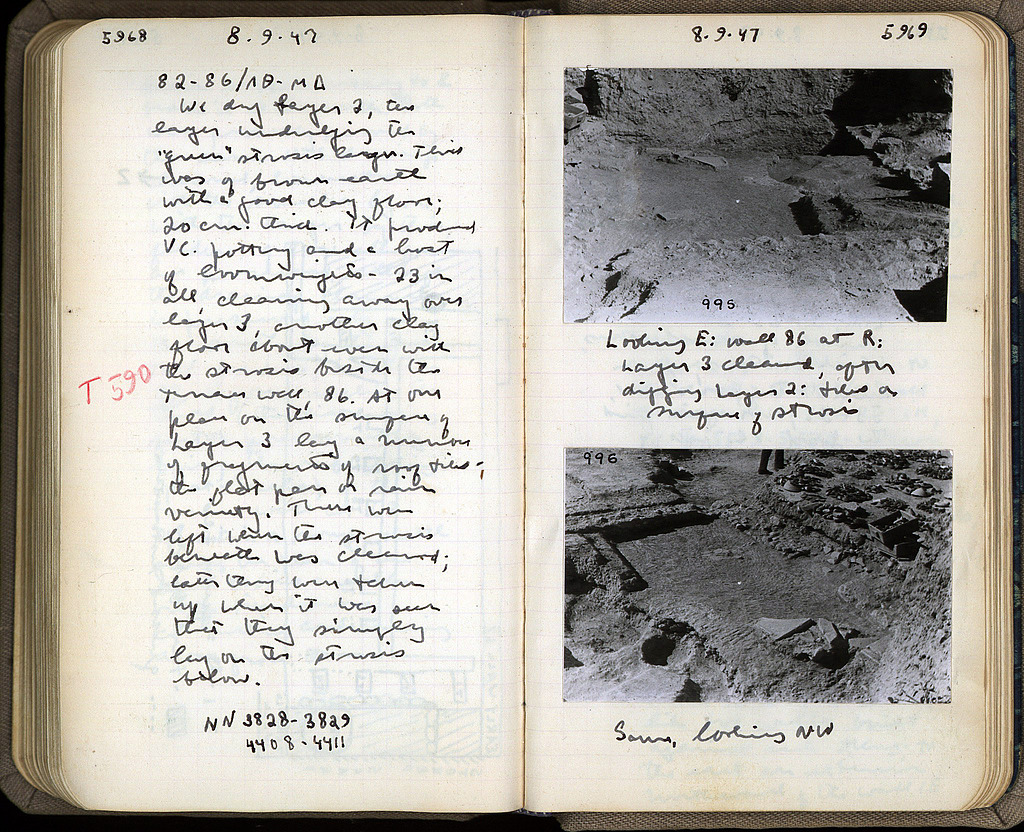 5968
8.9.47
82-86/ΛΘ-ΜΔ
We dug Layer 2, the
layer underlying the
"green" strosis layer. This
was of brown earth
with a good clay floor;
20 cm. thick. It produced
VC. pottery and a host
of loomweights - 23 in
all, cleaning away over
layer 3, another clay
floor about even with
the strosis beside the
terrace wall, 86. At one
place on the surface of
Layer 3 lay a number
of fragments of roof tiles -
the flat pan
variety. These were
left when the strosis
beneath was cleaned;
later they were taken
up when it was seen
that they simply
lay on the strosis
below.
T 590
NN 3828-3829
4408-4411
8.9.47
5969
995
Looking E: wall 86 at R:
Layer 3 cleaned, after
digging Layer 2: tiles on
surface of strosis
996
Same, looking NW